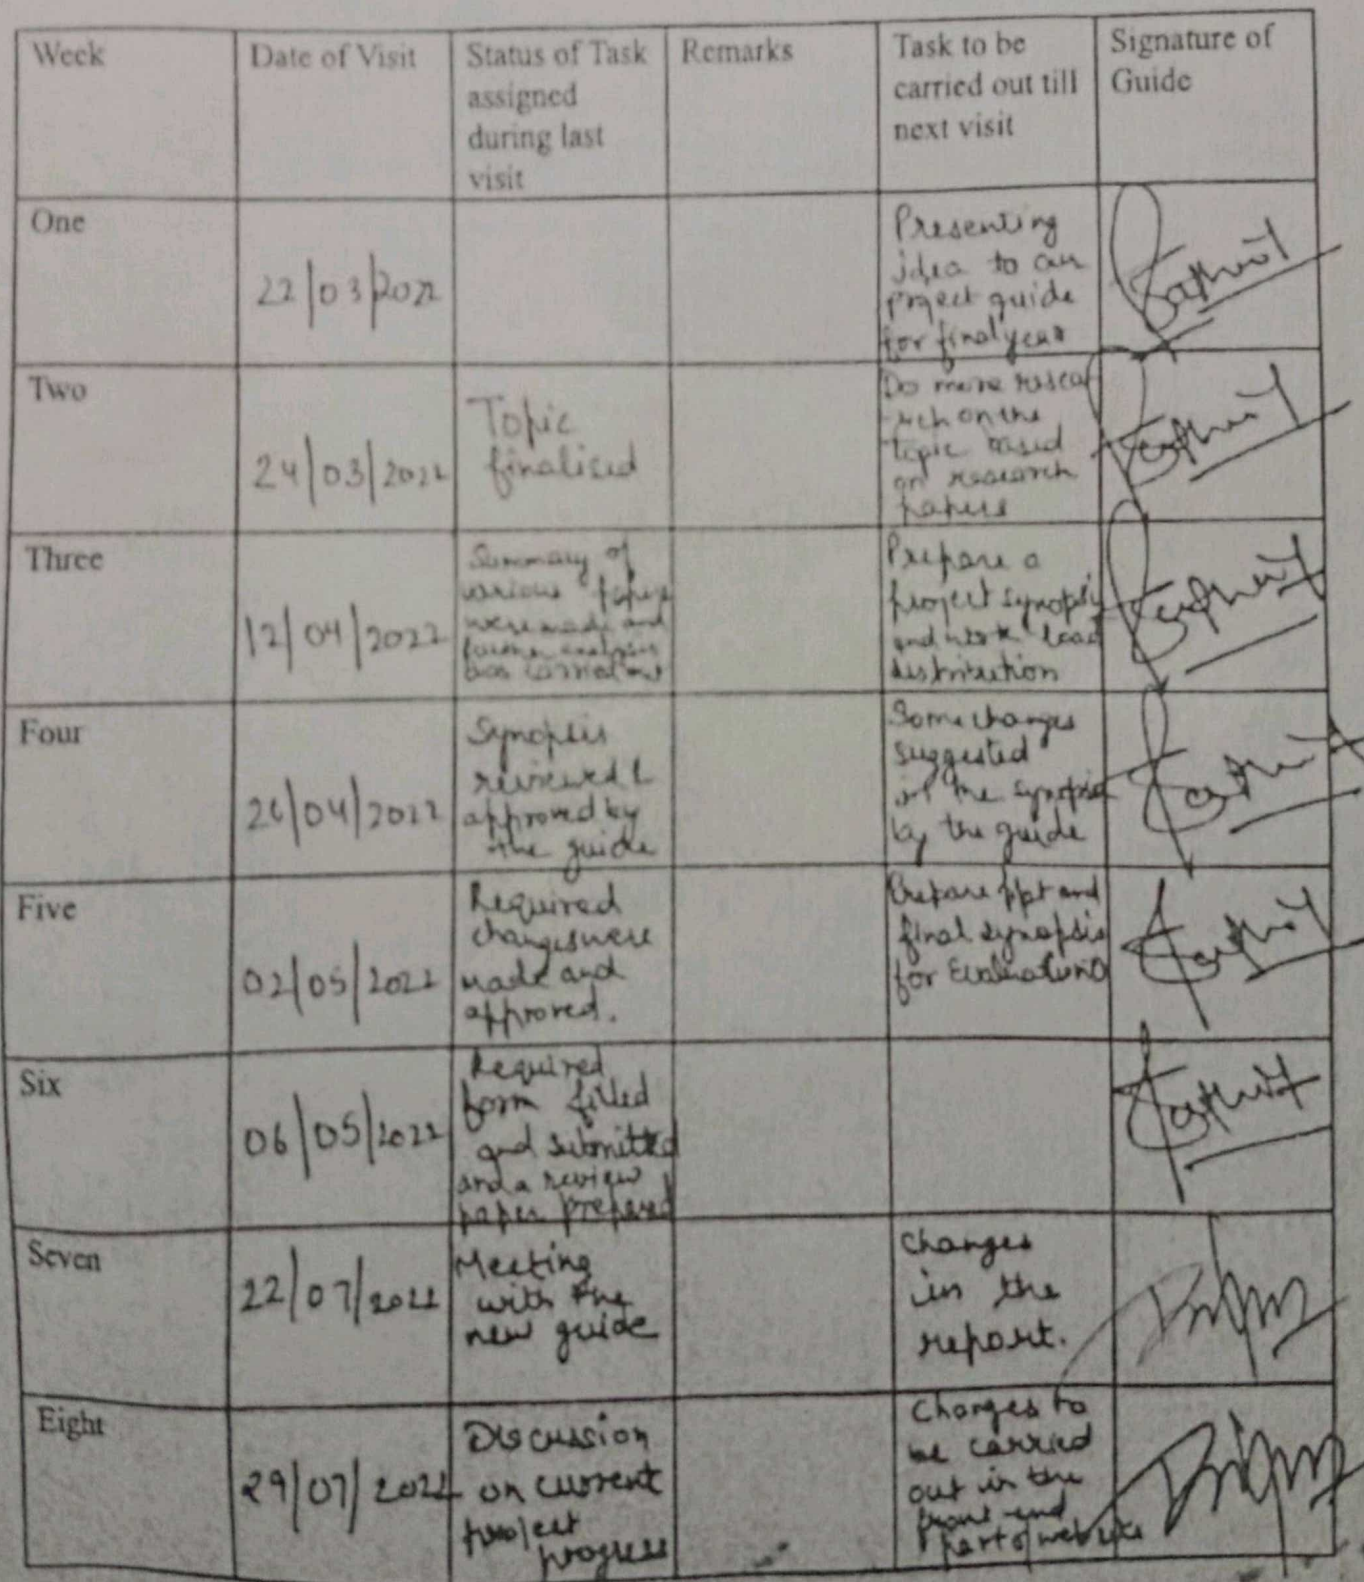 Week
Date of Visit
Status of Task
assigned
during last
visit
Remarks
Task to be
carried out till
next visit
Signature of
Guide
One
22/03/2022
Presenting
idea to our
project guide
for final year
Two
24/03/2022
Topic
finalised
Do more resea
rch on the
topic based
on research
papers
Three
12/04/2022
Summary of
various papers
were made and
further analysis
was carried out
Prepare a
project synopsis
and work load
distribution
Four
26/04/2022
Synopsis
reviewed &
approved by
the guide
Some changes
suggested
in the synopsis
by the guide
Five
02/05/2022
Required
changes were
made and
approved.
Prepare ppt and
final synopsis
for Evaluation
Six
06/05/2022
Required
form filled
and submitted
and a review
paper prepared
Seven
22/07/2022
Meeting
with the
new guide
Changes
in the
report.
Eight
29/07/2022
Discussion
on current
project
progress
Changes to
be carried
out in the
front-end
part of website